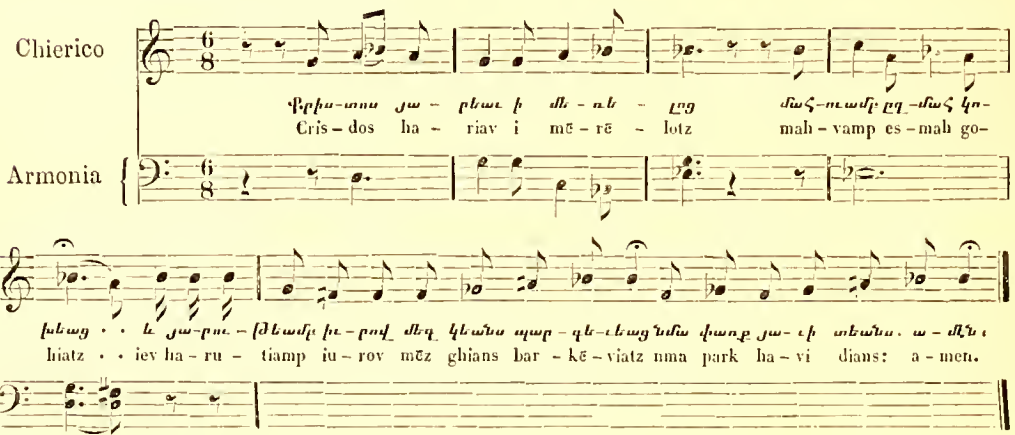 Chierico
Քրիս-տոս յա - րեաւ ի մե - ռե - լոց մահ-ուամբ ըզ-մահ կո-
Cris-dos ha - riav i mē-rē - lotz mah-vamp es-mah go-
Armonia
խեաց . . և յա-րու-թեամբ իւ-րով մեզ կեանս պար-գե-ւեաց նմա փառք յա-ւի տեանս. ա-մէն։
hiatz . . iev ha-ru - tiamp iu-rov mēz ghians bar-kē-viatz nma park ha-vi dians: a-men.